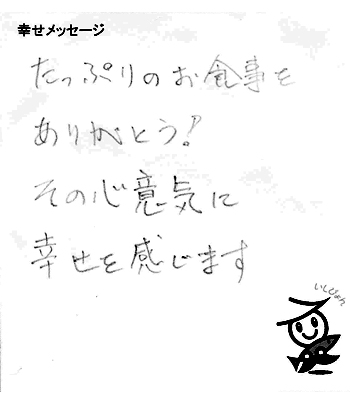 幸せメッセージ
たっぷりのお食事を
ありがとう!
その心意気に
幸せを感じます